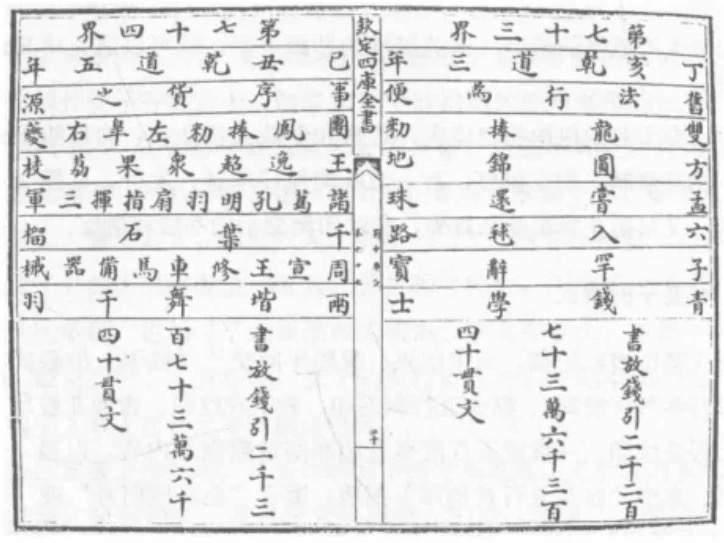 第七十三界
丁亥乾道三年
舊法行為便
雙龍捧勑
方圓錦地
孟嘗還珠
六入毬路
子罕辭寶
青錢學士
書放錢引二千二百
七十三萬六千三百
四十貫文
欽定四庫全書
第七十四界
己丑乾道五年
事序貨之源
團鳳捧勑左右皐夔
王逸超泉果荔枝
諸葛孔明羽扇指揮三軍
千葉石榴
周宣王修車馬備器械
兩堦舞干羽
書放錢引二千三
百七十三萬六千
四十貫文